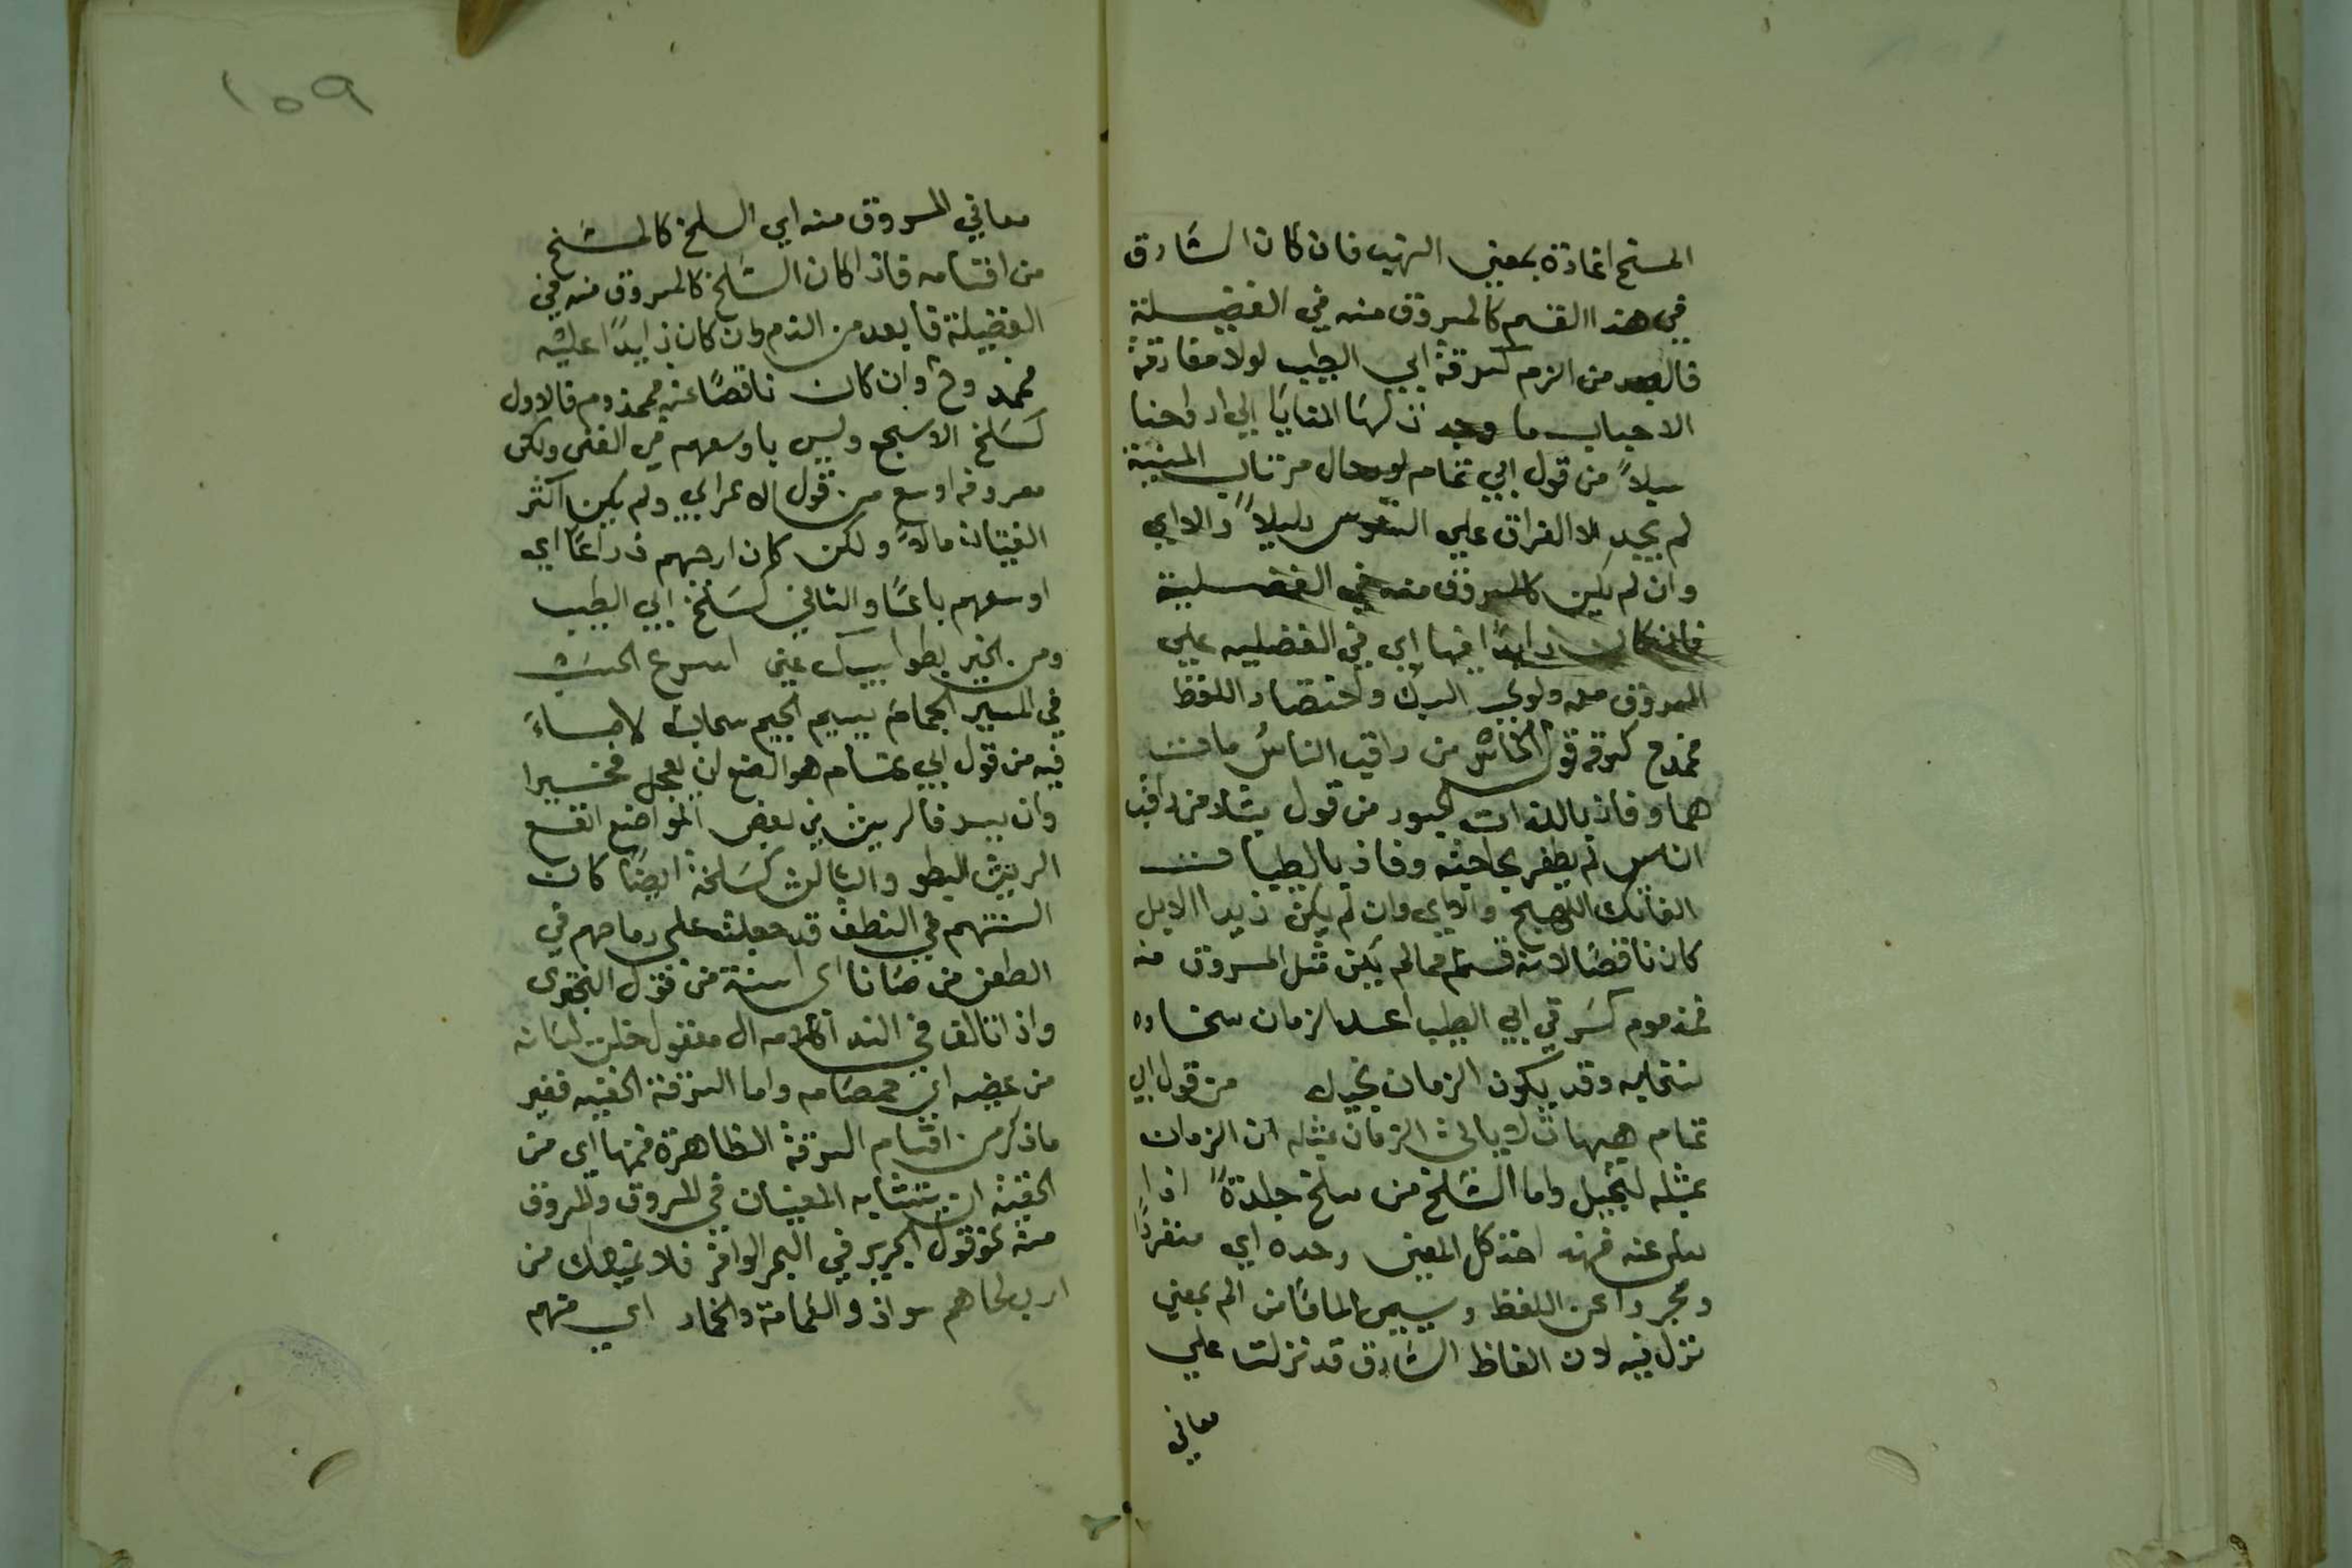 المسخ اغارة بمعني النهب فان كان السارق
في هذا القسم كالمسروق منه في الفضيلة
فالبعد من الزم كسرقة ابي الطيب لولا مفارقة
الاحباب ما وجدت لها المنايا الي ارواحنا
سبلاً من قول ابي تمام لوحال مرتاب المنية
لم يجد الا الفراق علي النفوس دليلاً والا اي
وان لم يكن كالمسروق منه في الفضلية
فان كان زايداً فيها اي في الفضليه علي
المسروق منه ولوبحسن السبك واختصار اللفظ
فممدوح كسرقه قول الخاسر من راقب الناس مات
هما وفاز باللذات الجسور من قول بشار من راقب
الناس لم يظفر بحاجته وفاز بالطيبات
الفاتك اللهج والا اي وان لم يكن زايدا الابل
كان ناقصا لانه قسم مما لم يكن مثل المسروق منه
فمذموم كسرقي ابي الطيب اعدا الزمان سخاوه
فسخابه وقد يكون الزمان بخيل من قول ابي
تمام هيهات لا ياتي الزمان بمثله ان الزمان
بمثله لبخيل واما السلخ من سلخ جلدةً اذا
سله عنه فهذ اخذ كل المعني وحده اي منفرداً
ومجردا عن اللفظ ويسمي الماما من الم بمعني
نزل فيه لان الفاظ السارق قد نزلت علي
معاني
١٥٩
معاني المسروق منه اي السلخ كالمسخ
من اقسامه فاذا كان السلخ كالمسروق منه في
الفضيلة فابعد من الذم وان كان زايداً عليه
فممدوح وان كان ناقصاً عنه فمذموم فالاول
كسلخ الاسجع وليس باوسعهم في الغنى ولكن
معروفه اوسع من قول الاعرابي ولم يكن اكثر
الفتيان مالاً ولكن كان ارحبهم ذراعاً اي
اوسعهم باعاً والثاني كسلخ ابي الطيب
ومن الخير بطو سيبك عني اسرع السحب
في المسير الجهام بسيم الجيم سحاب لا ماء
فيه من قول ابي تمام هو الصنع ان يعجل فخيرا
وان يبد فالريث في بعض المواضع انفع
الريث البطو والثالث كسلخه ايضا كان
السنتهم في النطق قد جعلت علي رماحهم في
الطعن خرصانا اي اسنة من قول البحتري
واذا تالق في الندا كلامه ال مصقول خلت لسانه
من عضبه اي صمصامه واما السرقة الخفيه فغير
ما ذكر من اقسام السرقة الظاهرة فمنها اي من
الخفية ان يتشابه المعنيان في المسروق والمسروق
منه نحو قول الجرير في البحر الوافر فلا يمنعك من
ارب لحاهم سواذ والعمامة والخمار اي منهم